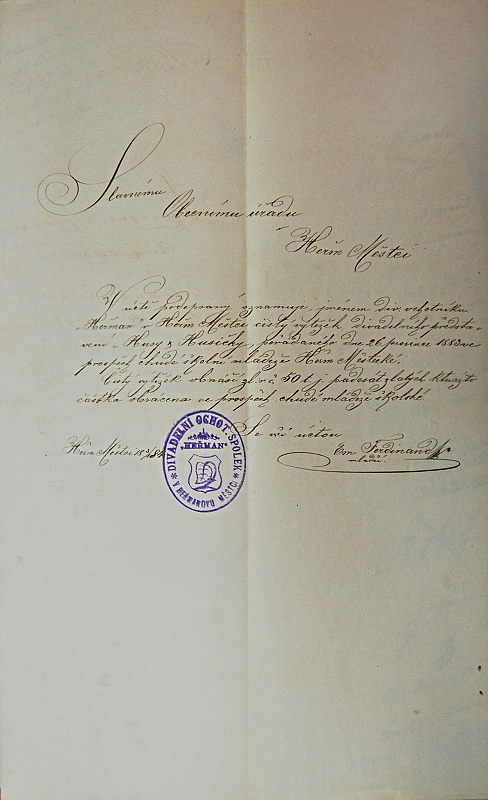 Slavnému
Obecnímu úřadu
Heřm Městci
V úctě podepsaný oznamuje, jménem div. ochotníku
„Heřman" v Heřm Městci čistý výtěžek divadelního předsta-
vení „Husy & Husičky" pořádaného dne 26 prosince 1883 ve
prospěch chudé školní mládeže Heřm Městecké.
Čistý výtěžek obnáší zl. r. č. 50 t. j. padesát zlatých
částka obrácena ve prospěch chudé mládeže školské.
Se vší úctou
Heřm Městci
Em Ferdinand
mladší.
DIVADELNÍ OCHOT. SPOLEK
„HEŘMAN"
V HEŘMANOVU MĚSTCI